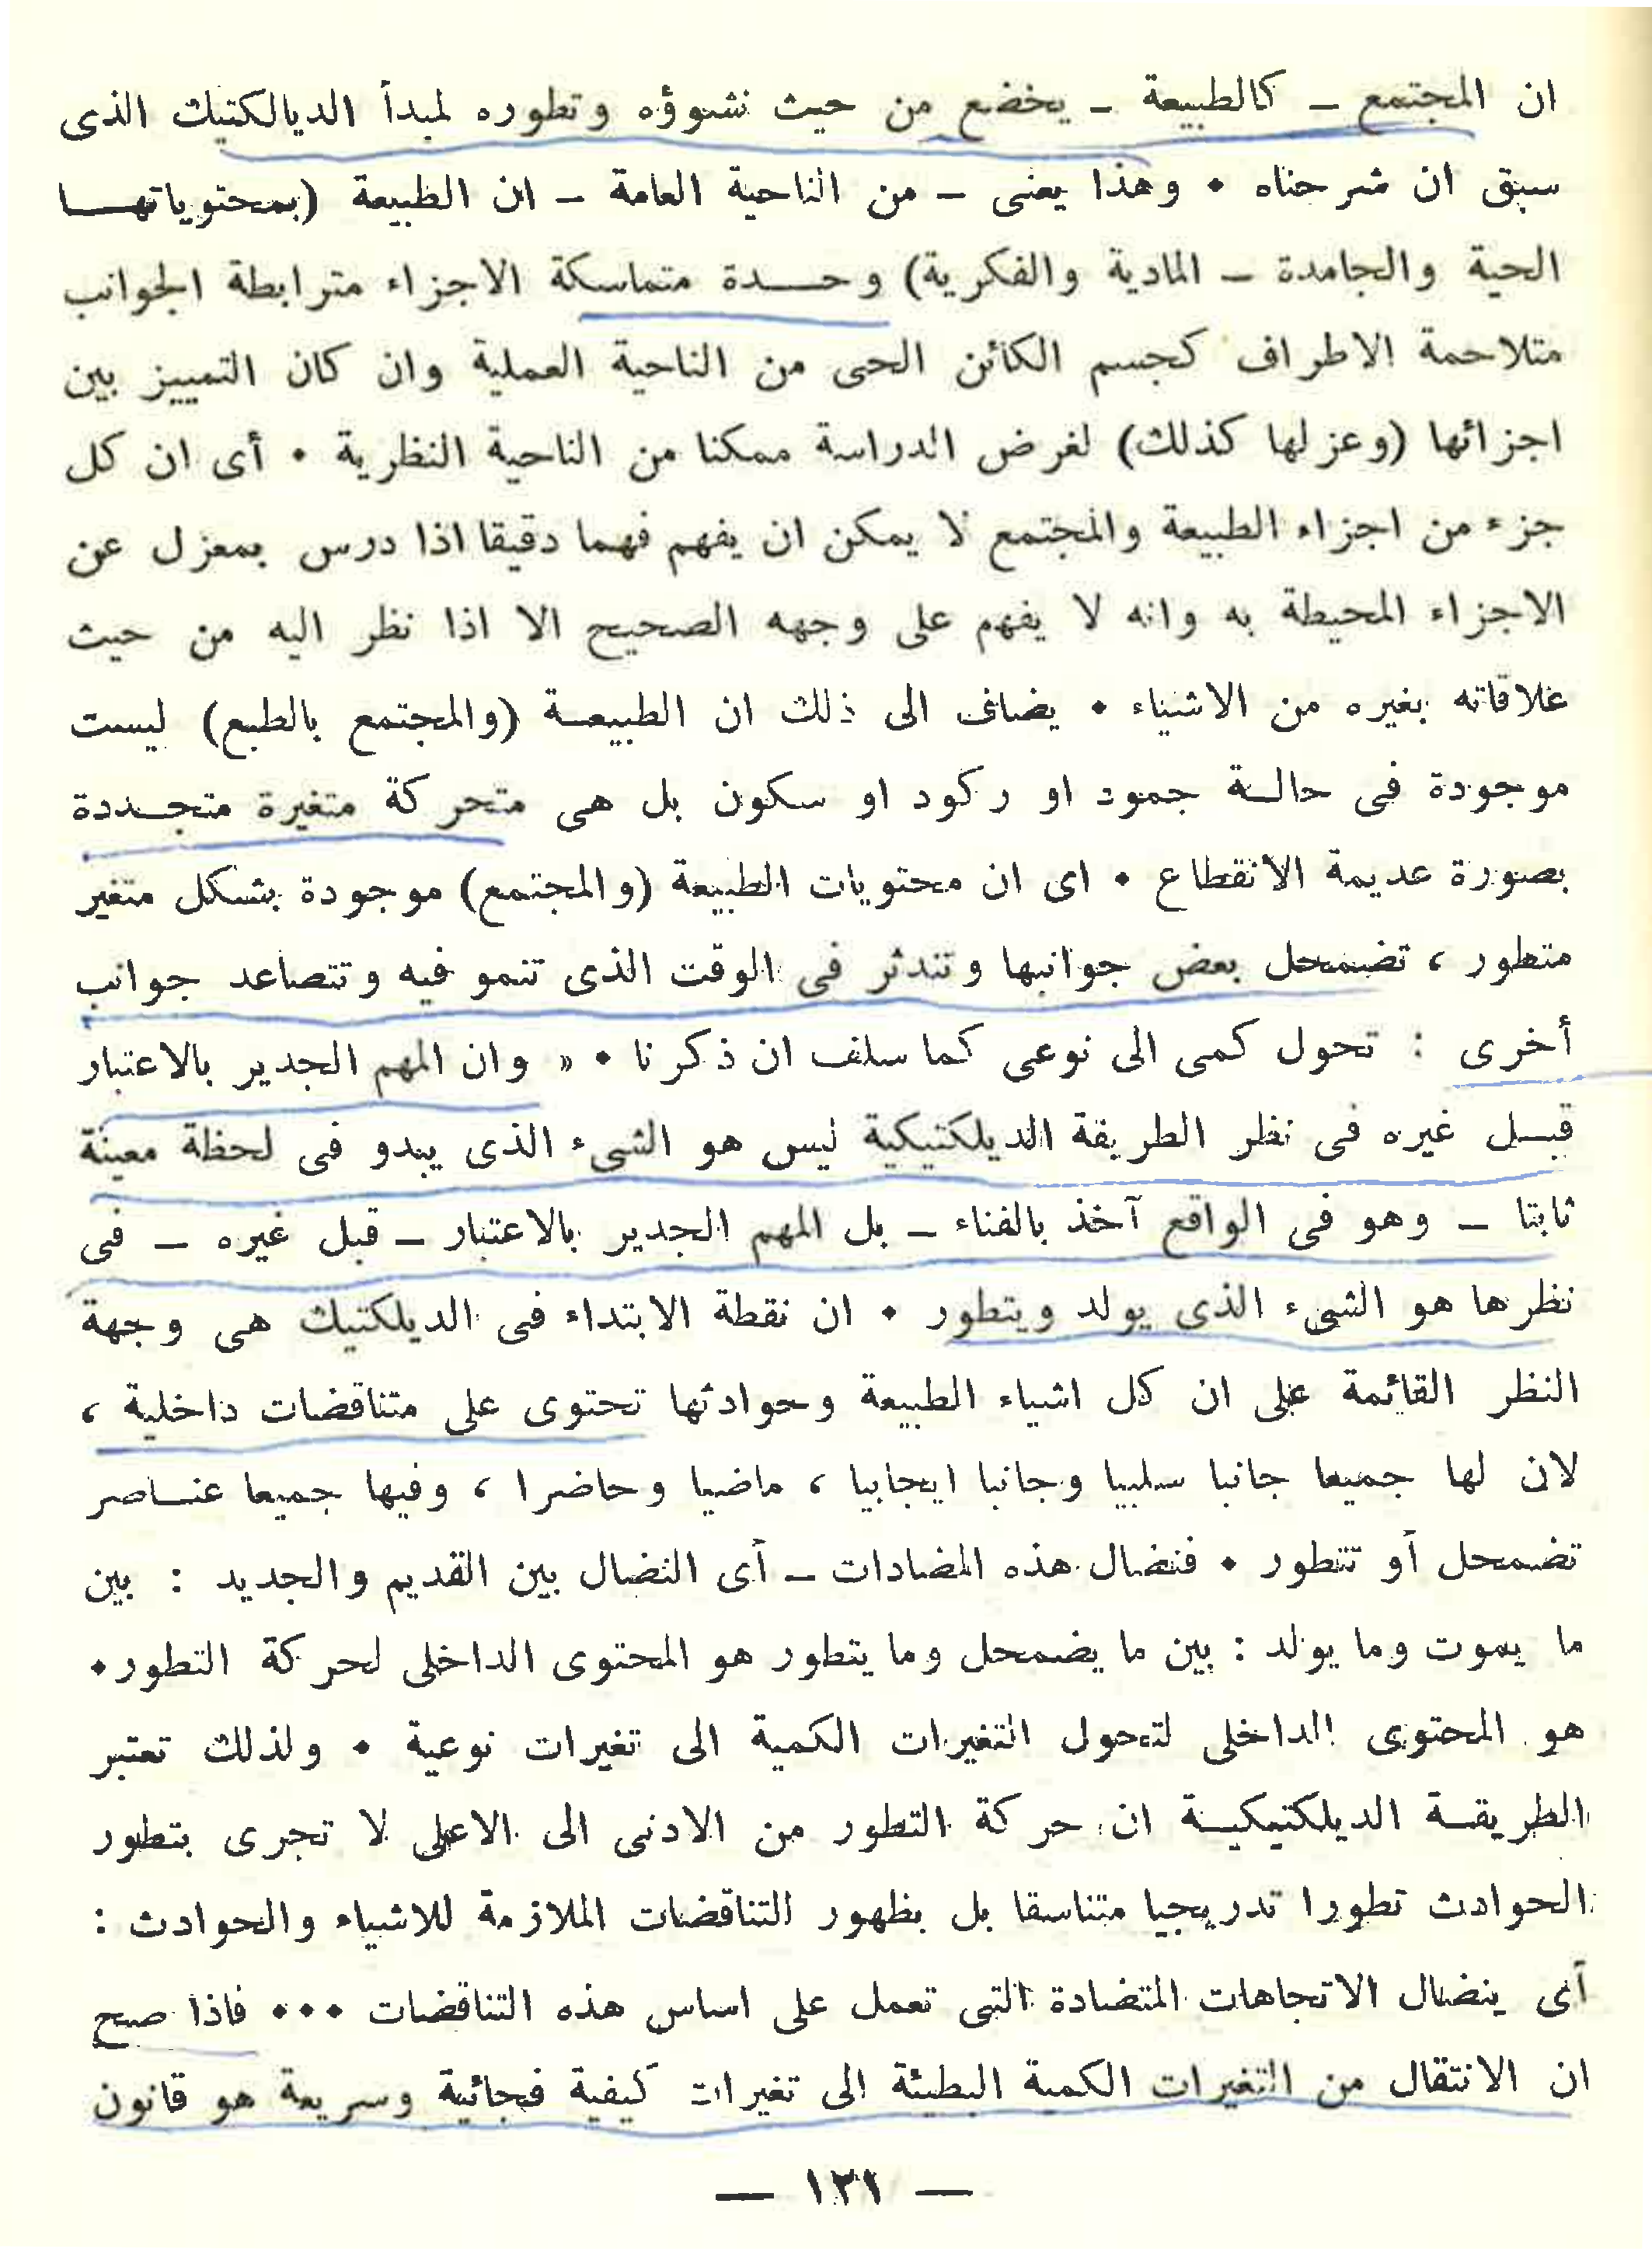 ان المجتمع – كالطبيعة – يخضع من حيث نشوؤه وتطوره لمبدأ الديالكتيك الذى
سبق ان شرحناه ٠ وهذا يعنى – من الناحية العامة – ان الطبيعة (بمحتوياتهـــا
الحية والجامدة – المادية والفكرية) وحـــدة متماسكة الاجزاء مترابطة الجوانب
متلاحمة الاطراف كجسم الكائن الحى من الناحية العملية وان كان التمييز بين
اجزائها (وعزلها كذلك) لغرض الدراسة ممكنا من الناحية النظرية ٠ أى ان كل
جزء من اجزاء الطبيعة والمجتمع لا يمكن ان يفهم فهما دقيقا اذا درس بمعزل عن
الاجزاء المحيطة به وانه لا يفهم على وجهه الصحيح الا اذا نظر اليه من حيث
علاقاته بغيره من الاشياء ٠ يضاف الى ذلك ان الطبيعـة (والمجتمع بالطبع) ليست
موجودة فى حالـة جمود او ركود او سكون بل هى متحركة متغيرة متجـددة
بصورة عديمة الانقطاع ٠ اى ان محتويات الطبيعة (والمجتمع) موجودة بشكل متغير
متطور ، تضمحل بعض جوانبها وتندثر فى الوقت الذى تنمو فيه وتتصاعد جوانب
أخرى : تحول كمى الى نوعى كما سلف ان ذكرنا ٠ « وان المهم الجدير بالاعتبار
قبـل غيره فى نظر الطريقة الديلكتيكية ليس هو الشىء الذى يبدو فى لحظة معينة
ثابتا – وهو فى الواقع آخذ بالفناء – بل المهم الجدير بالاعتبار – قبل غيره – فى
نظرها هو الشىء الذى يولد ويتطور ٠ ان نقطة الابتداء فى الديلكتيك هى وجهة
النظر القائمة على ان كل اشياء الطبيعة وحوادثها تحتوى على متناقضات داخلية ،
لان لها جميعا جانبا سلبيا وجانبا ايجابيا ، ماضيا وحاضرا ، وفيها جميعا عنـاصر
تضمحل أو تتطور ٠ فنضال هذه المضادات – أى النضال بين القديم والجديد : بين
ما يموت وما يولد : بين ما يضمحل وما يتطور هو المحتوى الداخلى لحركة التطور٠
هو المحتوى الداخلى لتحول التغيرات الكمية الى تغيرات نوعية ٠ ولذلك تعتبر
الطريقـة الديلكتيكيـة ان حركة التطور من الادنى الى الاعلى لا تجرى بتطور
الحوادث تطورا تدريجيا متناسقا بل بظهور التناقضات الملازمة للاشياء والحوادث :
أى بنضال الاتجاهات المتضادة التى تعمل على اساس هذه التناقضات ٠٠٠ فاذا صح
ان الانتقال من التغيرات الكمية البطيئة الى تغيرات كيفية فجائية وسريعة هو قانون
– ١٢١ –